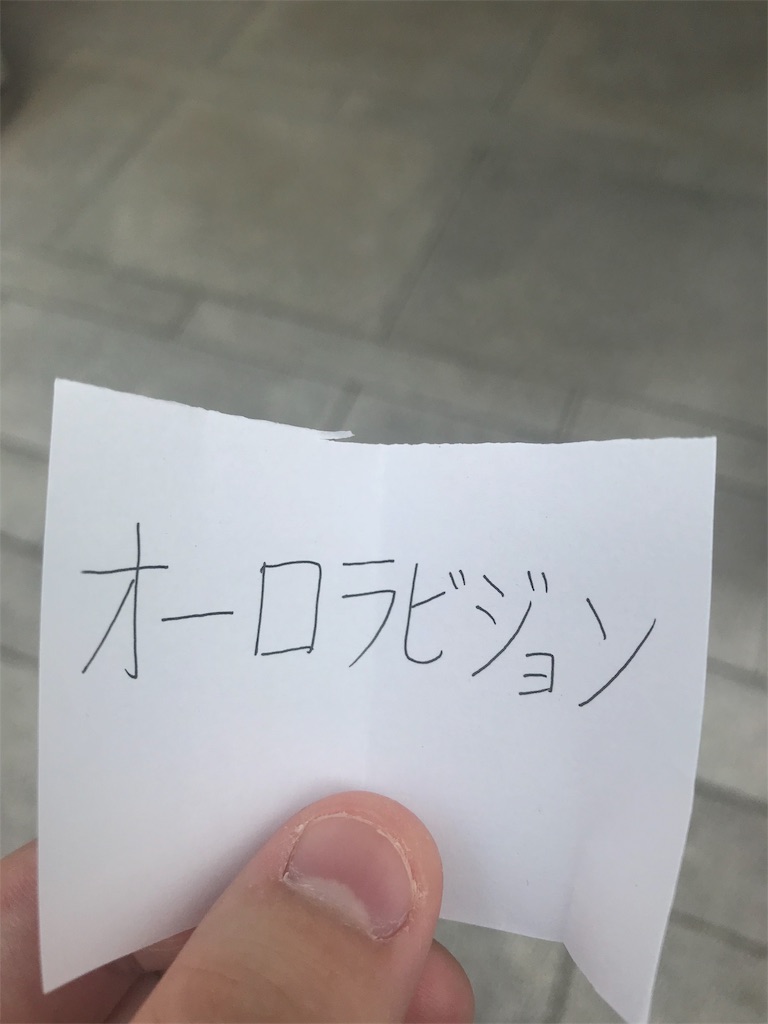 オーロラビジョン